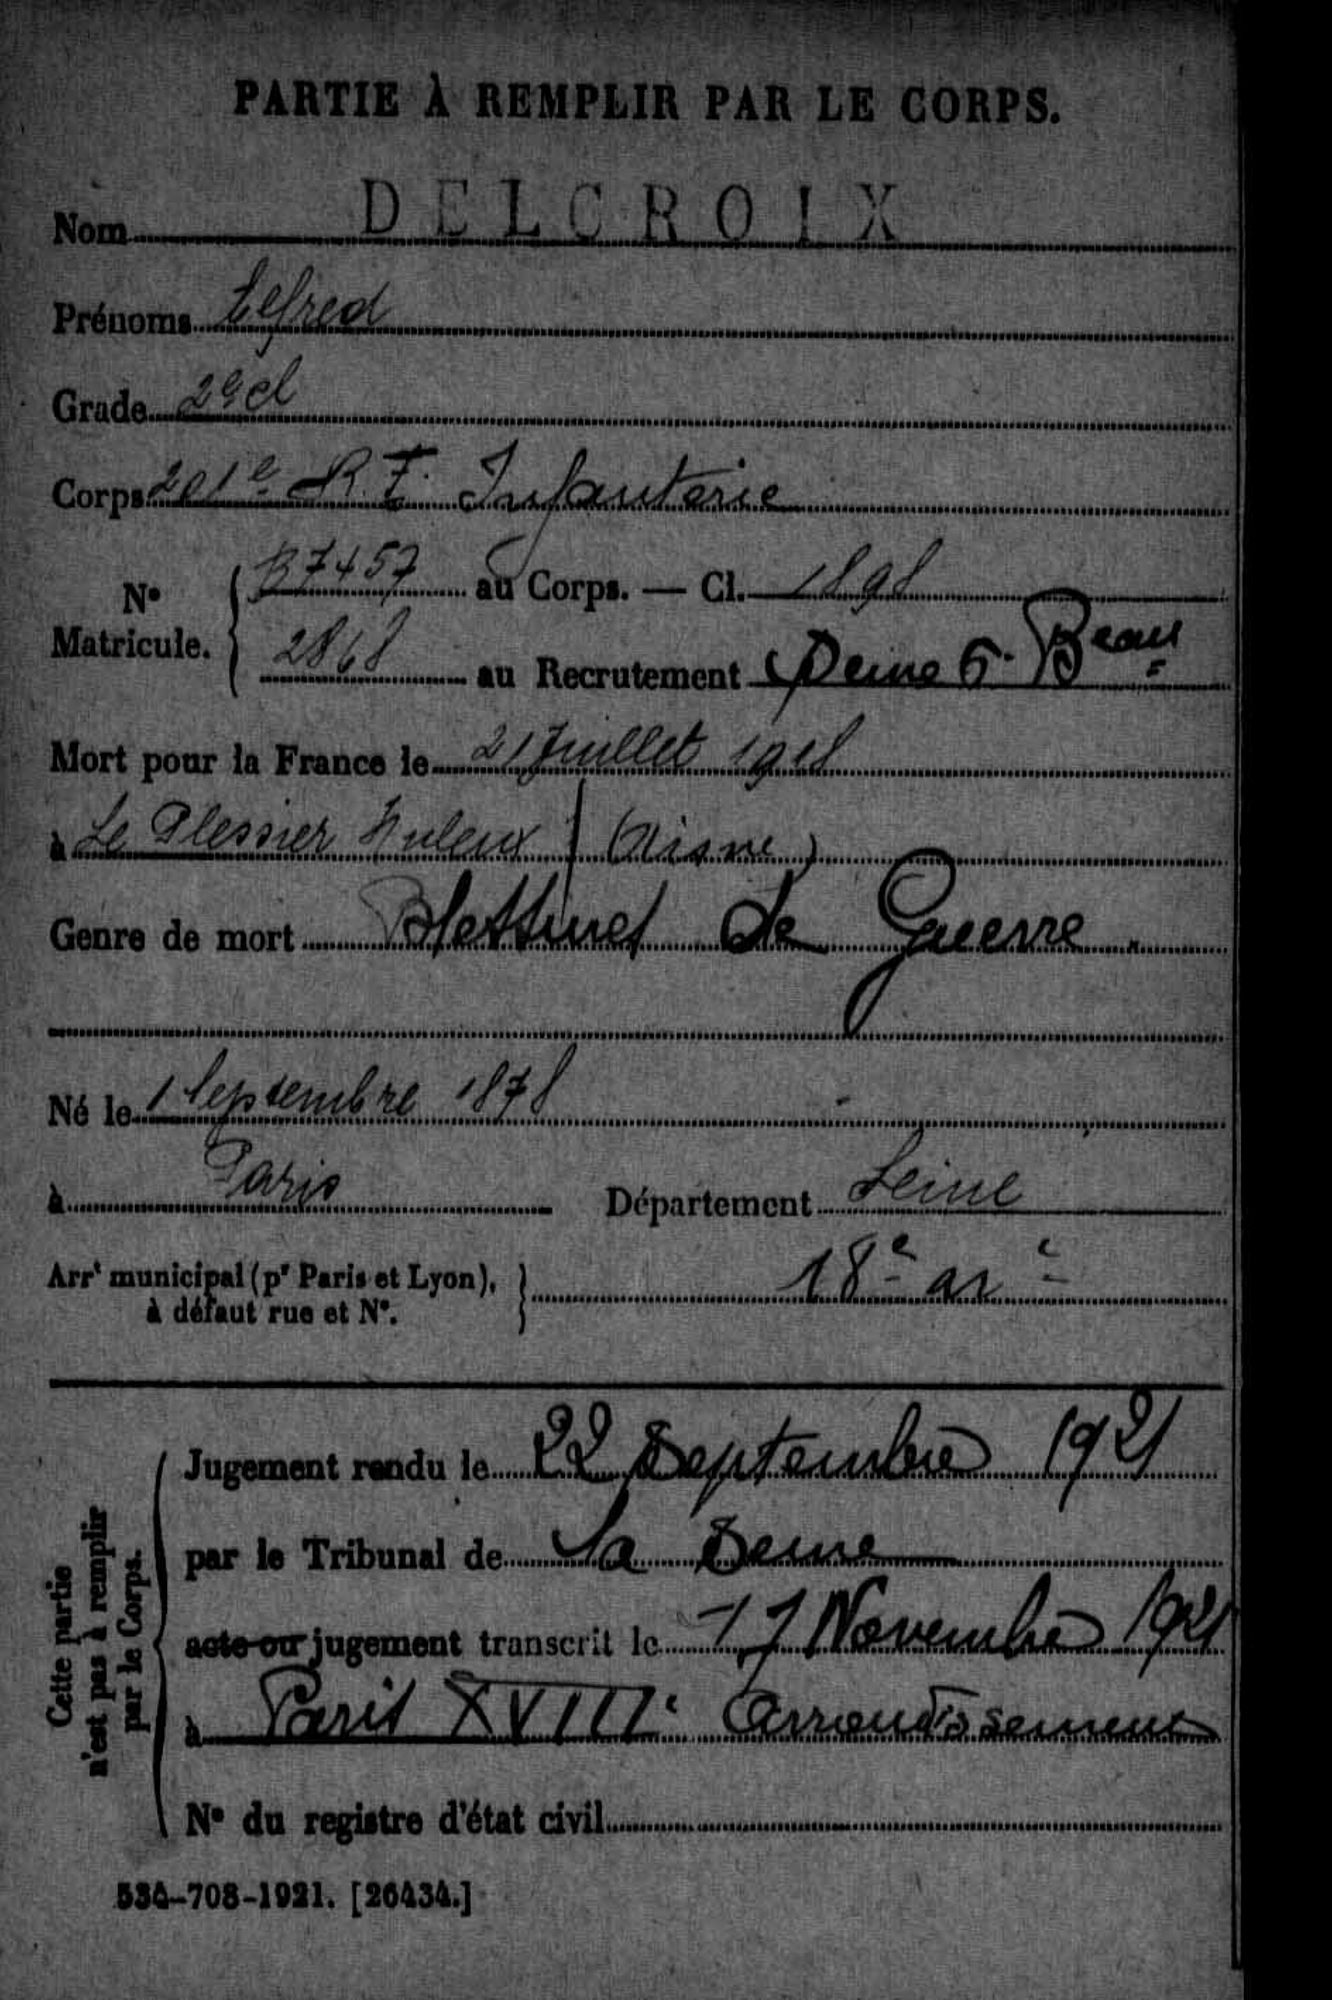 PARTIE À REMPLIR PAR LE CORPS.
Nom DELCROIX
Prénoms Alfred
Grade 2e cl
Corps 201e R.I. Infanterie
No Matricule. B7457 au Corps. — Cl. 1898
2868 au Recrutement Seine 6e Beau
Mort pour la France le 21 Juillet 1918
à Le Plessier Huleux (Aisne)
Genre de mort Blessures de Guerre
Né le 1 Septembre 1878
à Paris Département Seine
Arrt municipal (pr Paris et Lyon), à défaut rue et No. 18e arr
Cette partie n'est pas à remplir par le Corps.
Jugement rendu le 22 Septembre 1921
par le Tribunal de la Seine
acte ou jugement transcrit le 17 Novembre 1921
à Paris XVIIIe Arrondissement
No du registre d'état civil
534-708-1921. [26434.]